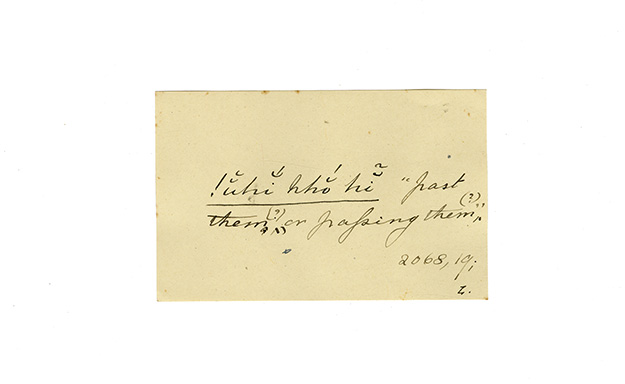 !ŭhĭ hhŏ́ hĭ̃ "past
them (?) or passing them (?)"
2068, 19;